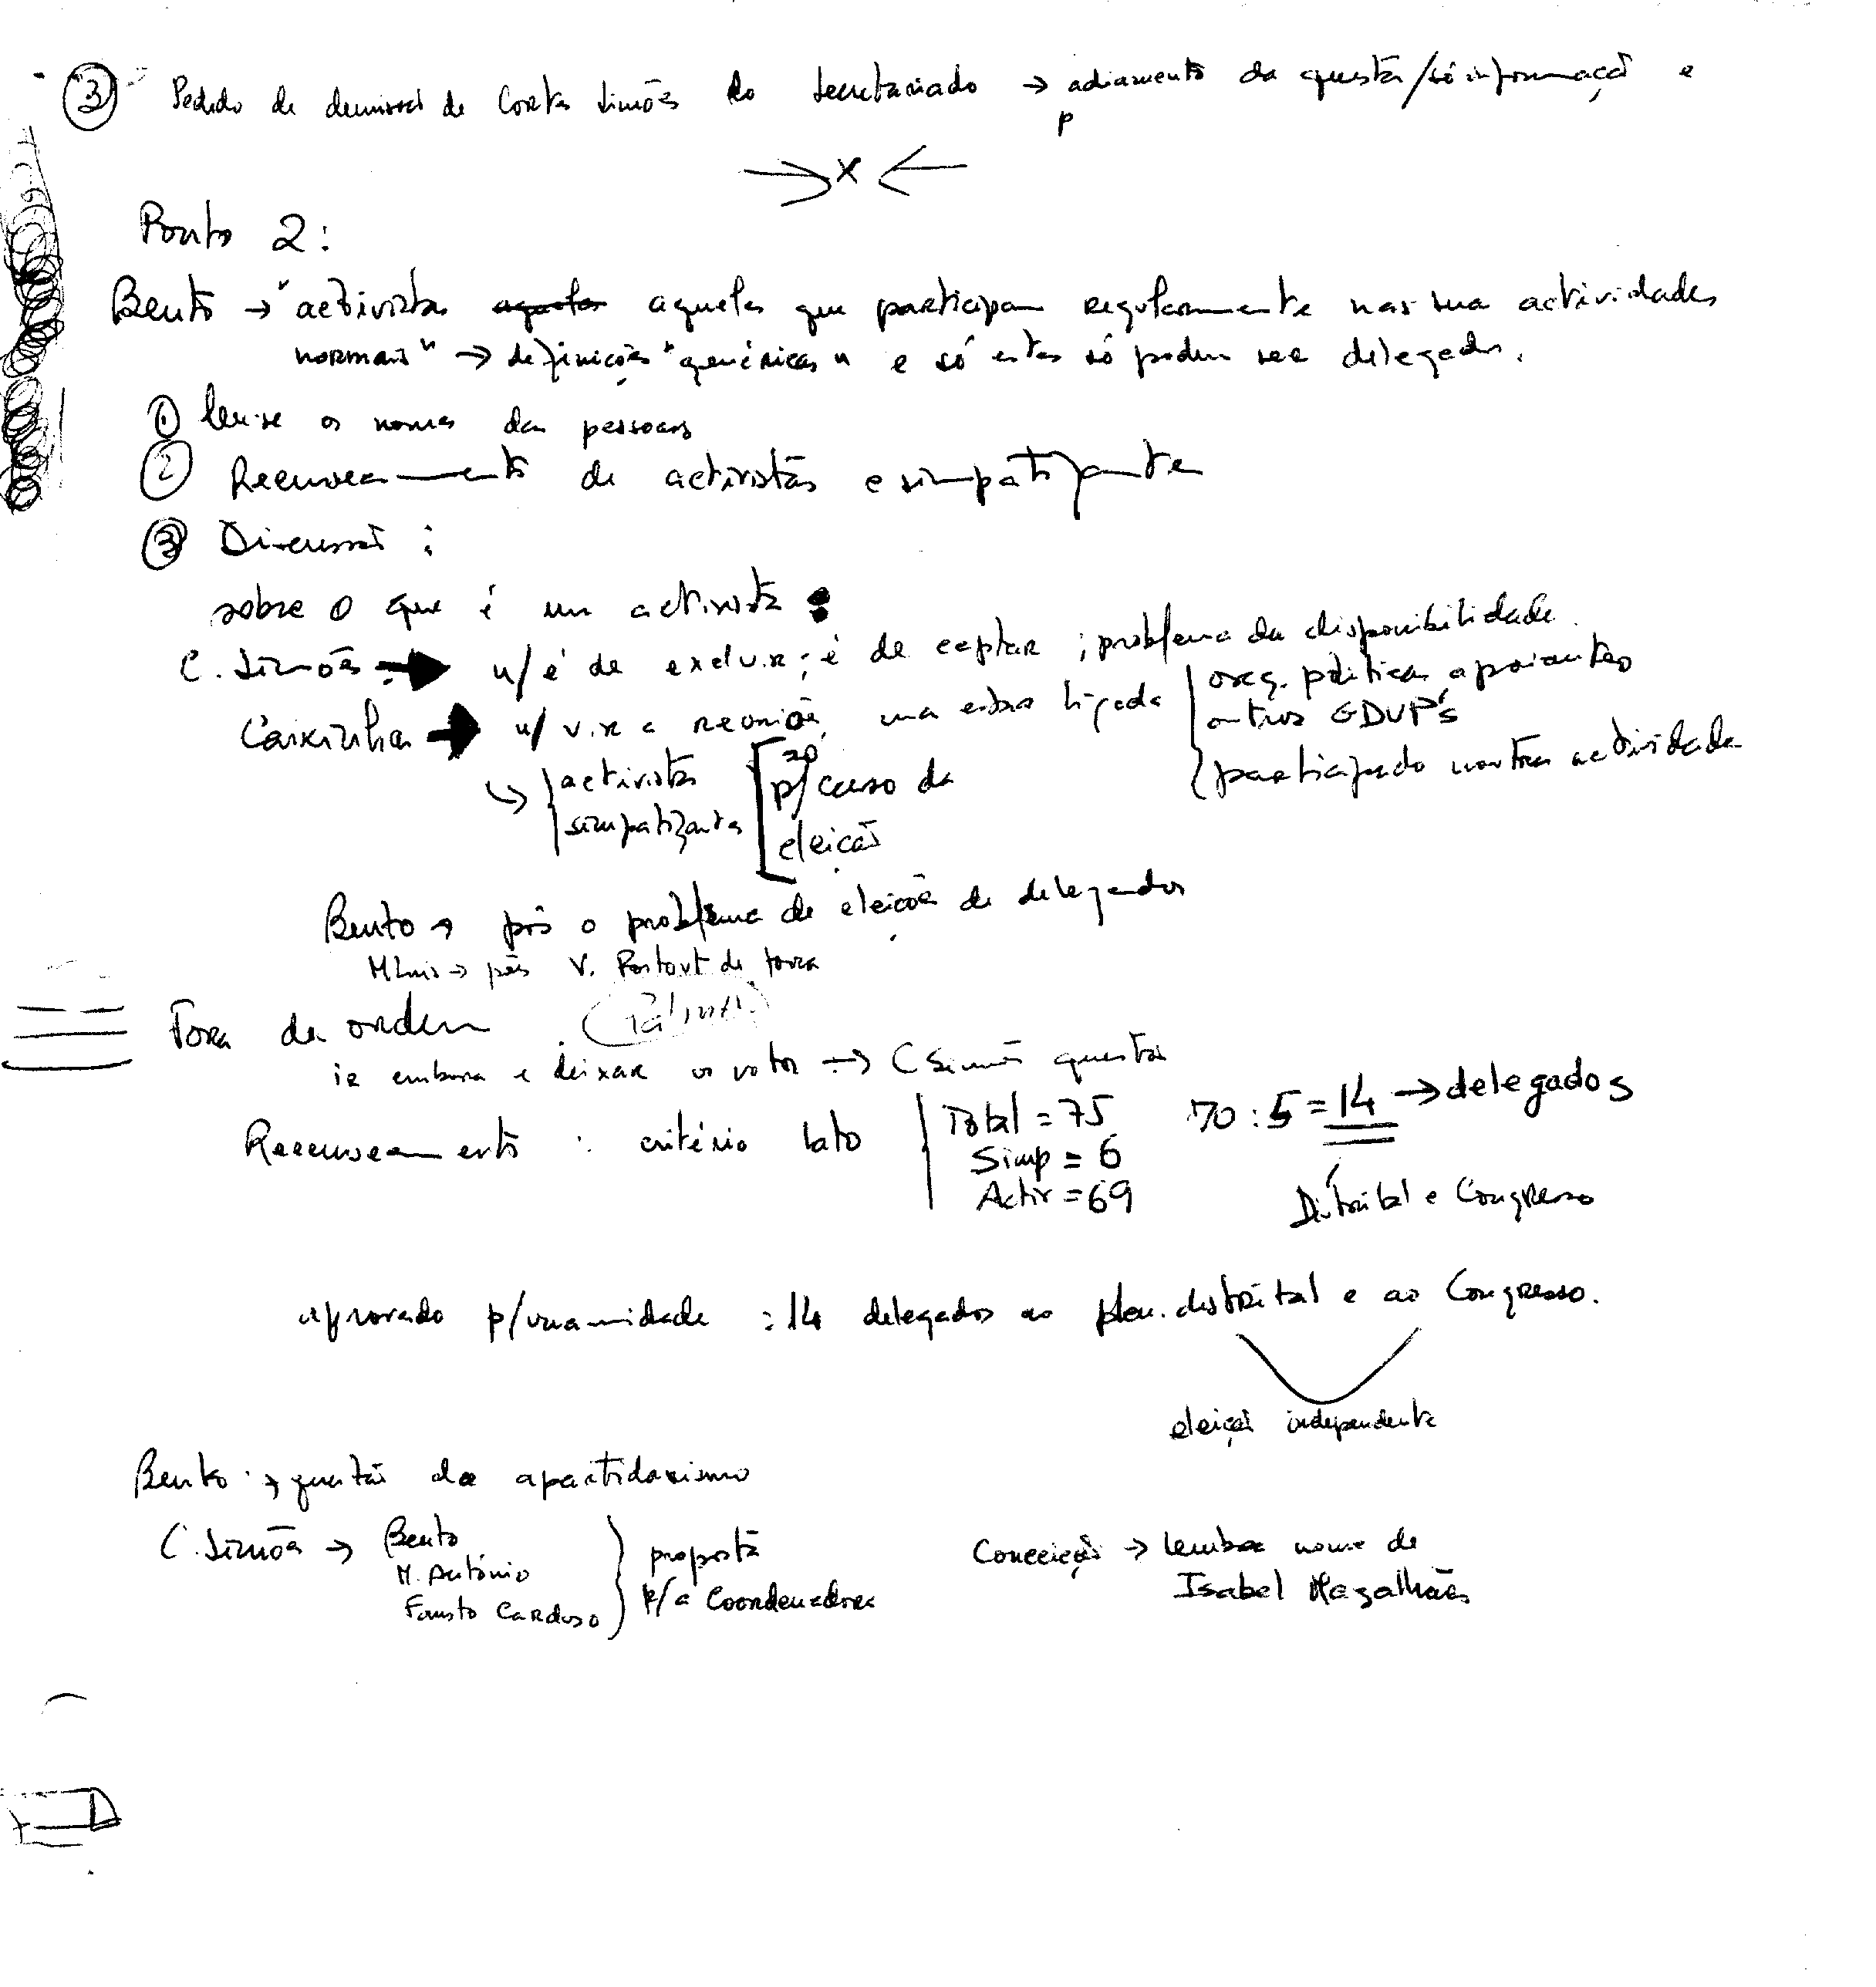 3 Pedido de demissão de Costa Simões do Secretariado → adiamento da questão/só informação e
p
→ x ←
Ponto 2:
Bento → "activistas aqueles que participam regularmente nas sua actividades
normais" → definições "genéricas" e só estes só podem ser delegados.
1 leu-se os nomes das pessoas
2 Recenseamento de activistas e simpatizante
3 Discussão:
sobre o que é um activista:
C. Simões → n/ é de excluir; é de captar ; problema da disponibilidade.
Caixinha → n/ vir a reuniões, mas estar ligado { org. políticas apoiantes
outros GDUP's
participado noutra actividade
↳ { activistas
simpatizantes [ p/ caso da
eleição
Bento → pôs o problema de eleições de delegados
M Luis → pôs V. de fora
Fora da ordem
ir embora e deixar os votos → C Simões questão
Recenseamento : critério lato { Total = 75
Simp = 6
Activ = 69
70 : 5 = 14 → delegados
Distrital e Congresso
aprovado p/ unamidade : 14 delegados ao plen. distrital e ao Congresso.
eleição independente
Bento → questão do apartidarismo
C. Simões → Bento
M. António
Fausto Cardoso } proposta
p/ a Coordenadora
Conceição → lembra nome de
Isabel Magalhães